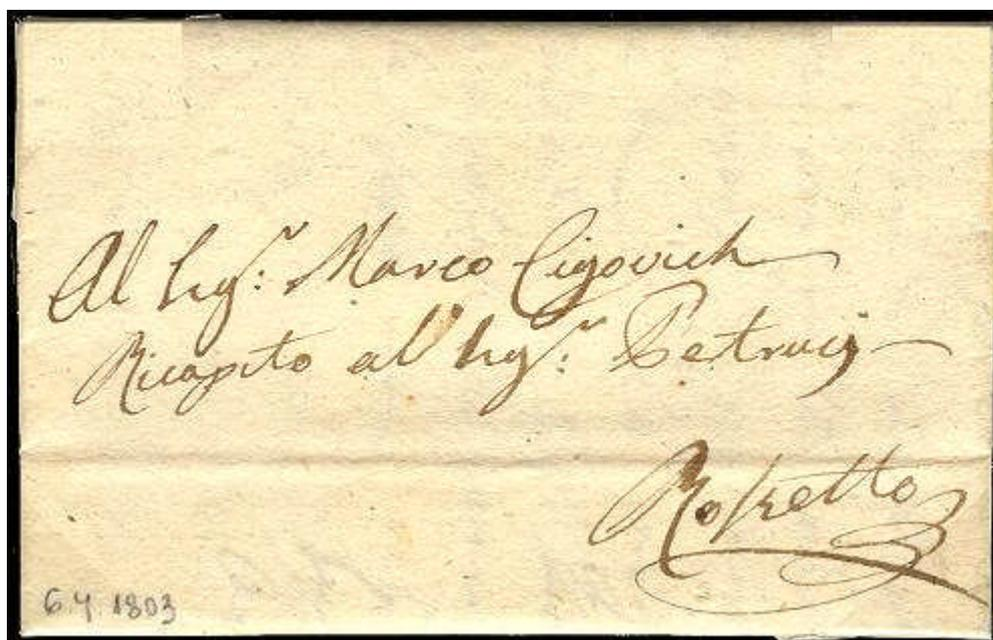 Al Sig.r: Marco Cigovich
Ricapito al Sig.r: Petrucij
Rossetto
6 4 1803